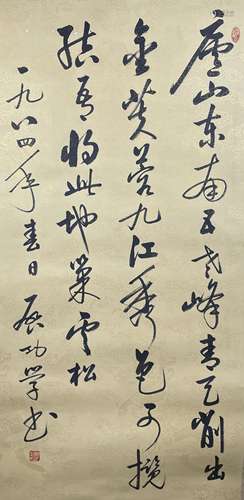 廬山东南五老峰青天削出
金芙蓉九江秀色可攬
結吾将此地巢云松
一九八四年春日 展功学书